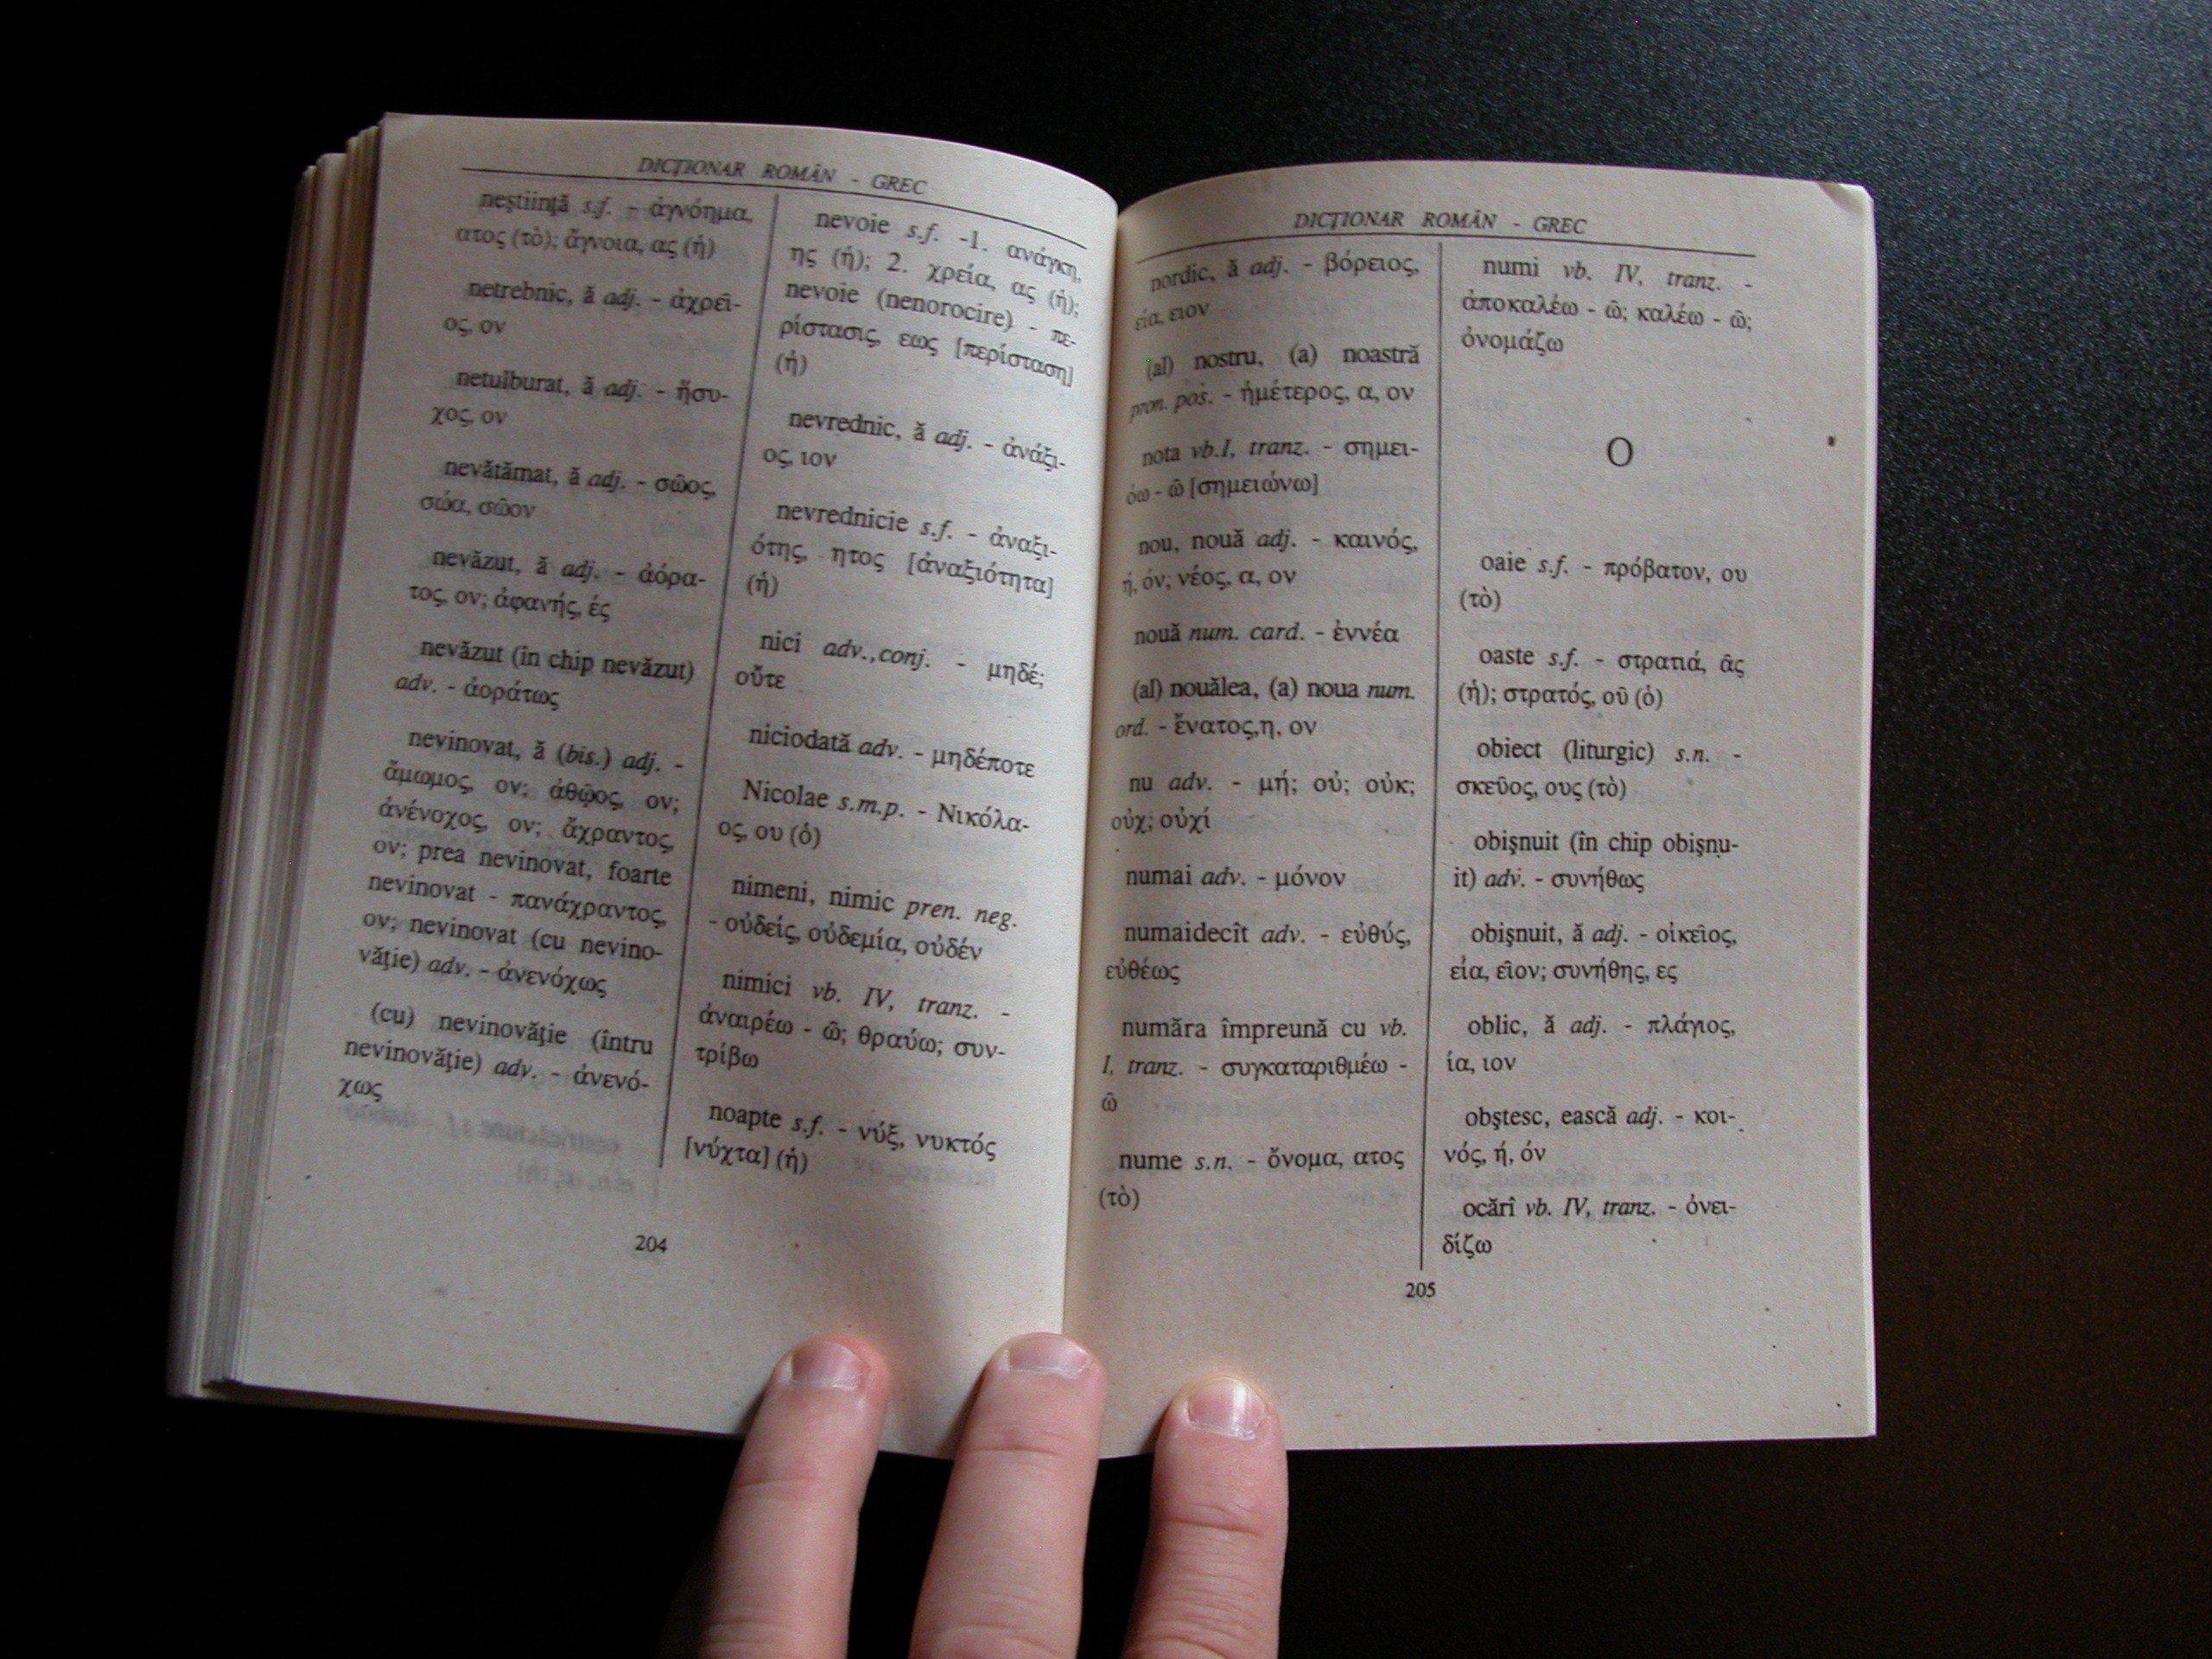 DICŢIONAR ROMÂN - GREC
neştiinţă s.f. - ἀγνόημα,
ατος (τὸ); ἄγνοια, ας (ἡ)
netrebnic, ă adj. - ἀχρεῖ-
ος, ον
netulburat, ă adj. - ἥσυ-
χος, ον
nevătămat, ă adj. - σῶος,
σώα, σῶον
nevăzut, ă adj. - ἀόρα-
τος, ον; ἀφανής, ές
nevăzut (în chip nevăzut)
adv. - ἀοράτως
nevinovat, ă (bis.) adj. -
ἄμωμος, ον; ἀθῷος, ον;
ἀνένοχος, ον; ἄχραντος,
ον; prea nevinovat, foarte
nevinovat - πανάχραντος,
ον; nevinovat (cu nevino-
văţie) adv. - ἀνενόχως
(cu) nevinovăţie (întru
nevinovăţie) adv. - ἀνενό-
χως
nevoie s.f. -1. ανάγκη,
ης (ἡ); 2. χρεία, ας (ἡ);
nevoie (nenorocire) - πε-
ρίστασις, εως [περίσταση]
(ἡ)
nevrednic, ă adj. - ἀνάξι-
ος, ιον
nevrednicie s.f. - ἀναξι-
ότης, ητος [ἀναξιότητα]
(ἡ)
nici adv.,conj. - μηδέ;
οὔτε
niciodată adv. - μηδέποτε
Nicolae s.m.p. - Νικόλα-
ος, ου (ὁ)
nimeni, nimic pren. neg.
- οὐδείς, οὐδεμία, οὐδέν
nimici vb. IV, tranz. -
ἀναιρέω - ῶ; θραύω; συν-
τρίβω
noapte s.f. - νύξ, νυκτός
[νύχτα] (ἡ)
204
DICŢIONAR ROMÂN - GREC
nordic, ă adj. - βόρειος,
εία, ειον
(al) nostru, (a) noastră
pron. pos. - ἡμέτερος, α, ον
nota vb.I, tranz. - σημει-
όω - ῶ [σημειώνω]
nou, nouă adj. - καινός,
ή, όν; νέος, α, ον
nouă num. card. - ἐννέα
(al) nouălea, (a) noua num.
ord. - ἔνατος,η, ον
nu adv. - μή; οὐ; οὐκ;
οὐχ; οὐχί
numai adv. - μόνον
numaidecît adv. - εὐθύς,
εὐθέως
număra împreună cu vb.
I, tranz. - συγκαταριθμέω -
ῶ
nume s.n. - ὄνομα, ατος
(τὸ)
numi vb. IV, tranz. -
ἀποκαλέω - ῶ; καλέω - ῶ;
ὀνομάζω
O
oaie s.f. - πρόβατον, ου
(τὸ)
oaste s.f. - στρατιά, ᾶς
(ἡ); στρατός, οῦ (ὁ)
obiect (liturgic) s.n. -
σκεῦος, ους (τὸ)
obişnuit (în chip obişnu-
it) adv. - συνήθως
obişnuit, ă adj. - οἰκεῖος,
εία, εῖον; συνήθης, ες
oblic, ă adj. - πλάγιος,
ία, ιον
obştesc, ească adj. - κοι-
νός, ή, όν
ocărî vb. IV, tranz. - ὀνει-
δίζω
205